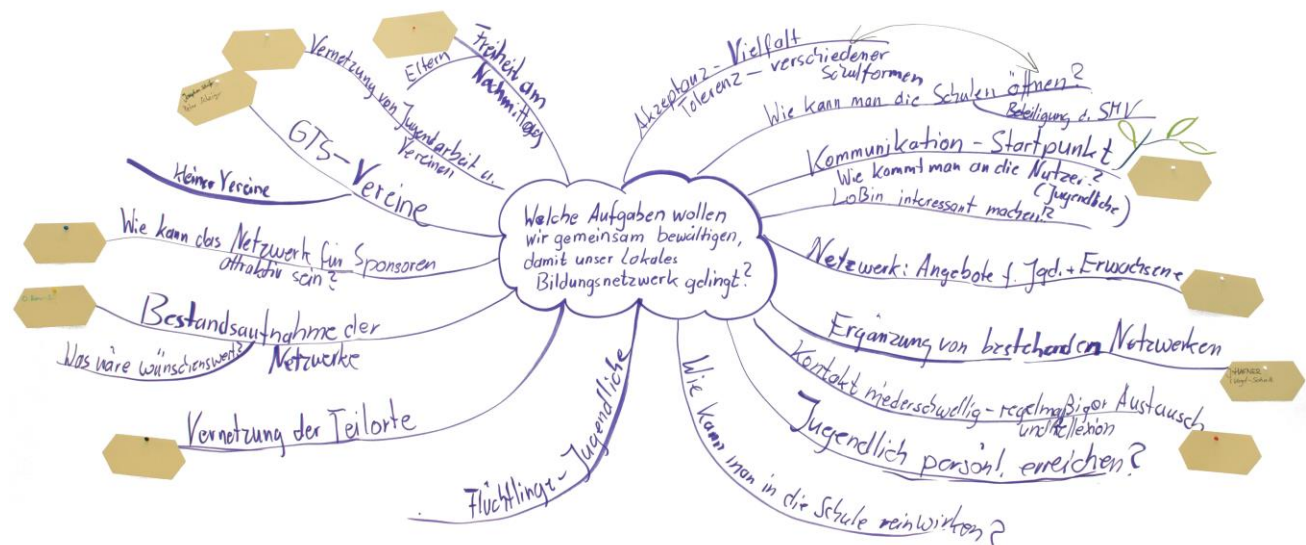 Welche Aufgaben wollen
wir gemeinsam bewältigen,
damit unser Lokales
Bildungsnetzwerk gelingt?
Akzeptanz - Vielfalt
Toleranz - verschiedener
Schulformen
Wie kann man die Schulen öffnen?
Beteiligung d. SMV
Kommunikation - Startpunkt
Wie kommt man an die Nutzer?
(Jugendliche)
LoBin interessant machen!?
Netzwerk: Angebote f. Jgd. + Erwachsene
Ergänzung von bestehenden Netzwerken
HAFNER
Kontakt niederschwellig - regelmäßiger Austausch
und Reflexion
Jugendlich persönl. erreichen?
Wie kann man in die Schule reinwirken?
Flüchtlinge - Jugendliche
Vernetzung der Teilorte
Bestandsaufnahme der
Netzwerke
Was wäre wünschenswert?
Wie kann das Netzwerk für Sponsoren
attraktiv sein?
GTS - Vereine
Heiner Vereine
Vernetzung von Jugendarbeit u.
Vereinen
Freiheit am
Nachmittag
Eltern